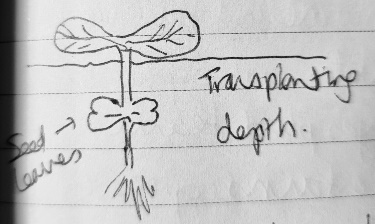 Transplanting
depth.
Seed
leaves